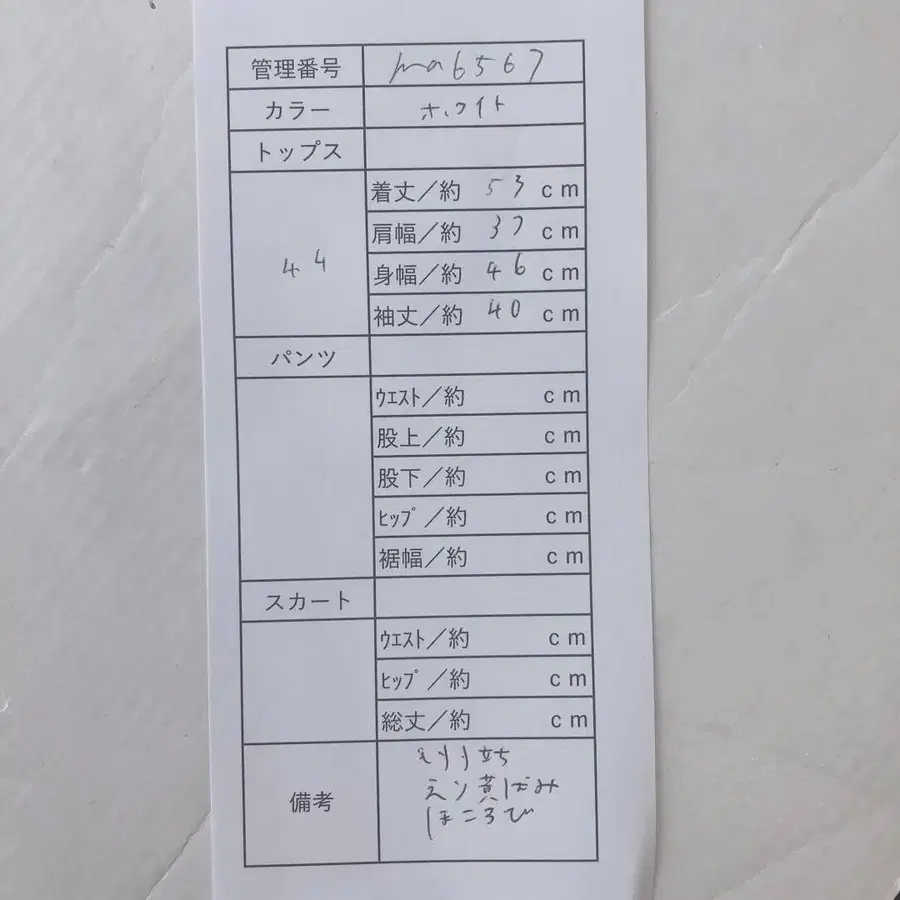 管理番号 ma6567
カラー ホワイト
トップス
44
着丈／約 53 cm
肩幅／約 37 cm
身幅／約 46 cm
袖丈／約 40 cm
パンツ
ｳｴｽﾄ／約 cm
股上／約 cm
股下／約 cm
ﾋｯﾌﾟ／約 cm
裾幅／約 cm
スカート
ｳｴｽﾄ／約 cm
ﾋｯﾌﾟ／約 cm
総丈／約 cm
備考
毛羽立ち
エリ黄ばみ
ほころび